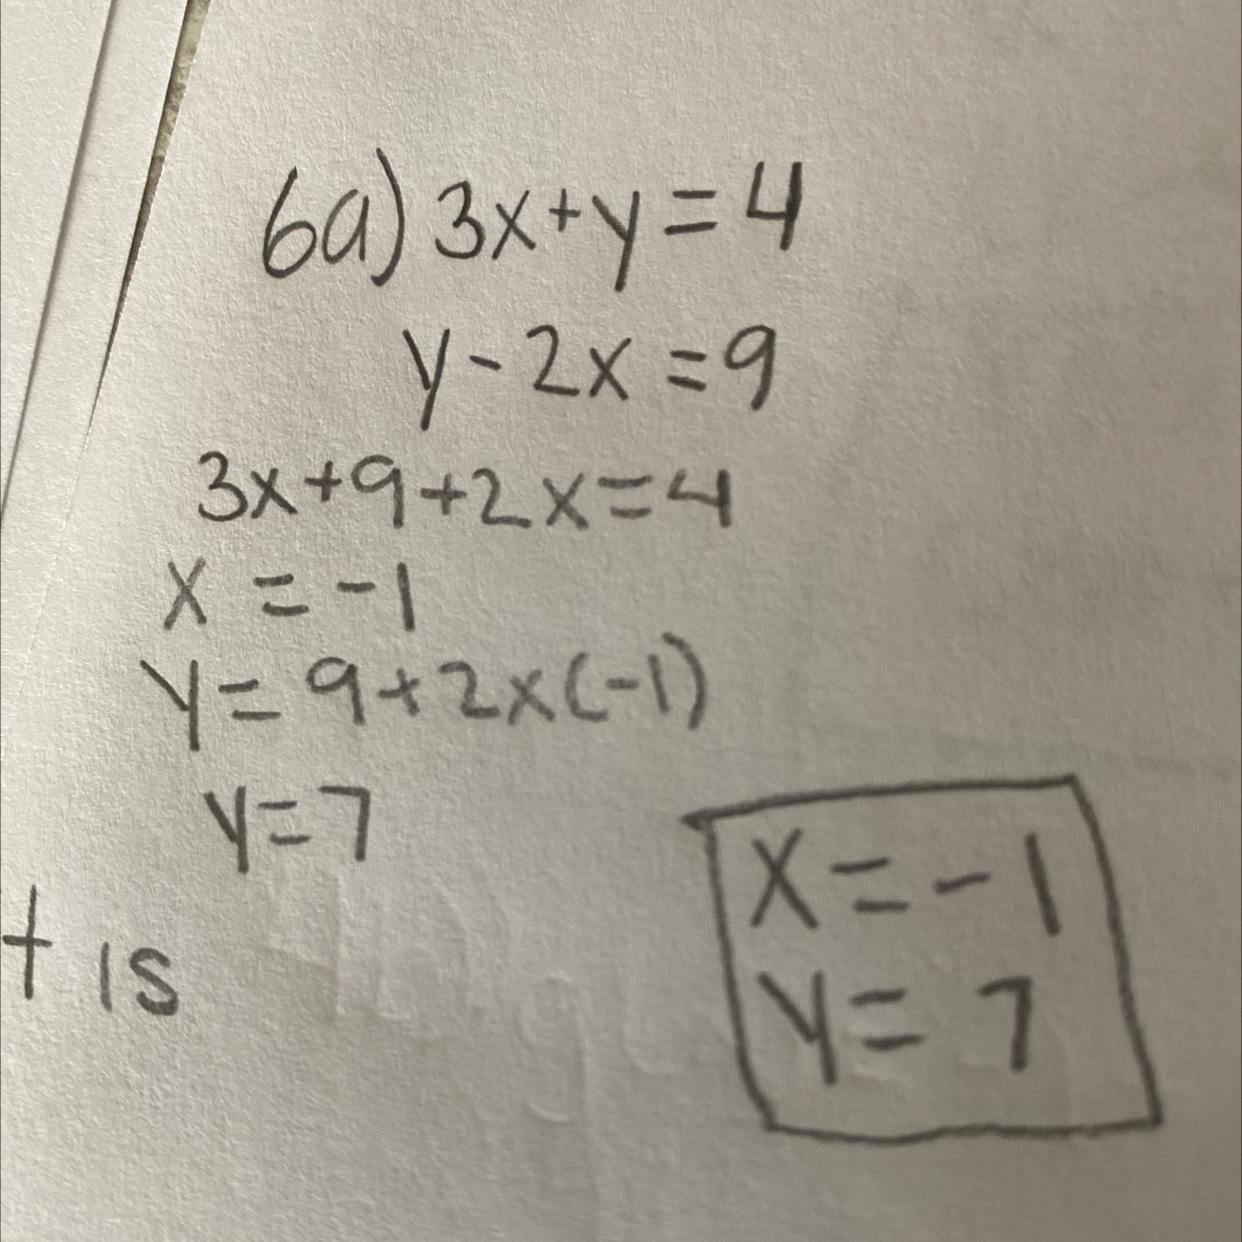 6a) 3x+y=4
y-2x=9
3x+9+2x=4
x = -1
y= 9+2x(-1)
y=7
t is
x=-1
y=7